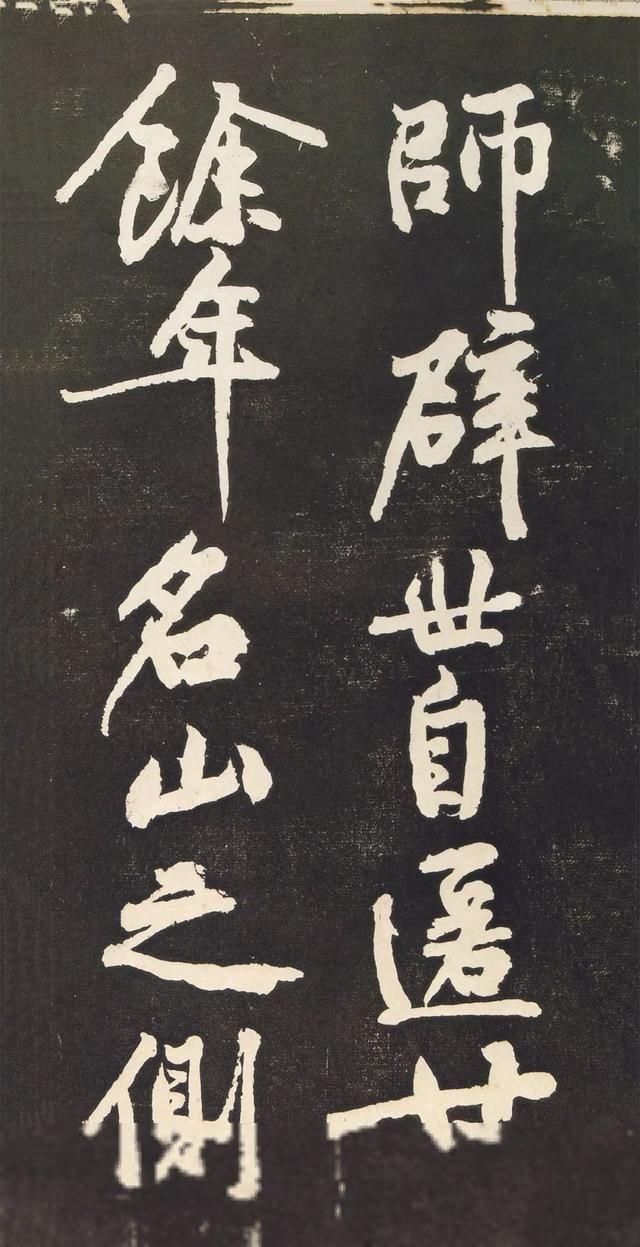 師辟世自匿廿
餘年名山之側